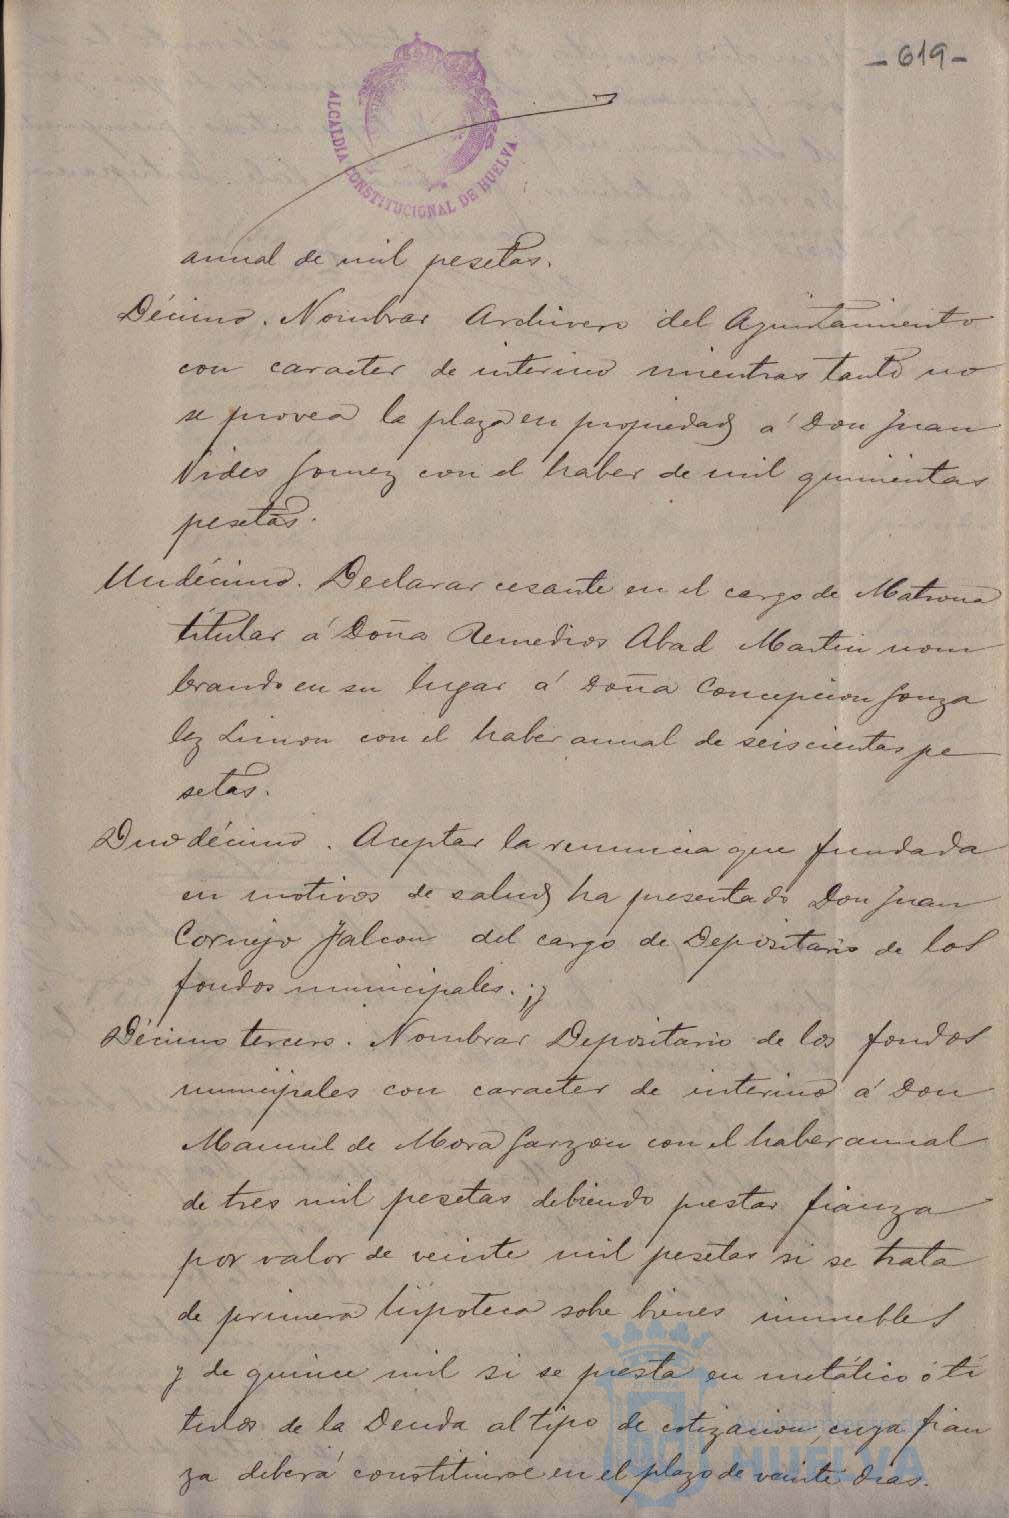 - 619 -
ALCALDIA CONSTITUCIONAL DE HUELVA
anual de mil pesetas.
Décimo. Nombrar Archivero del Ayuntamiento
con caracter de interino mientras tanto no
se provea la plaza en propiedad á Don Juan
Vides Gomez con el haber de mil quinientas
pesetas.
Undécimo. Declarar cesante en el cargo de Matrona
titular á Doña Remedios Abad Martin nom
brando en su lugar á Doña Concepcion Gonza
lez Limon con el haber anual de seiscientas pe
setas.
Duodécimo. Aceptar la renuncia que fundada
en motivos de salud ha presentado Don Juan
Cornejo Falcon del cargo de Depositario de los
fondos municipales. y
Décimo tercero. Nombrar Depositario de los fondos
municipales con caracter de interino á Don
Manuel de Mora Garzon con el haber anual
de tres mil pesetas debiendo prestar fianza
por valor de veinte mil pesetas si se trata
de primera hipoteca sobre bienes inmuebles
y de quince mil si se presta en metálico ó tí
tulos de la Deuda al tipo de cotizacion, cuya fian
za deberá constituirse en el plazo de veinte dias.
Ayuntamiento de
HUELVA